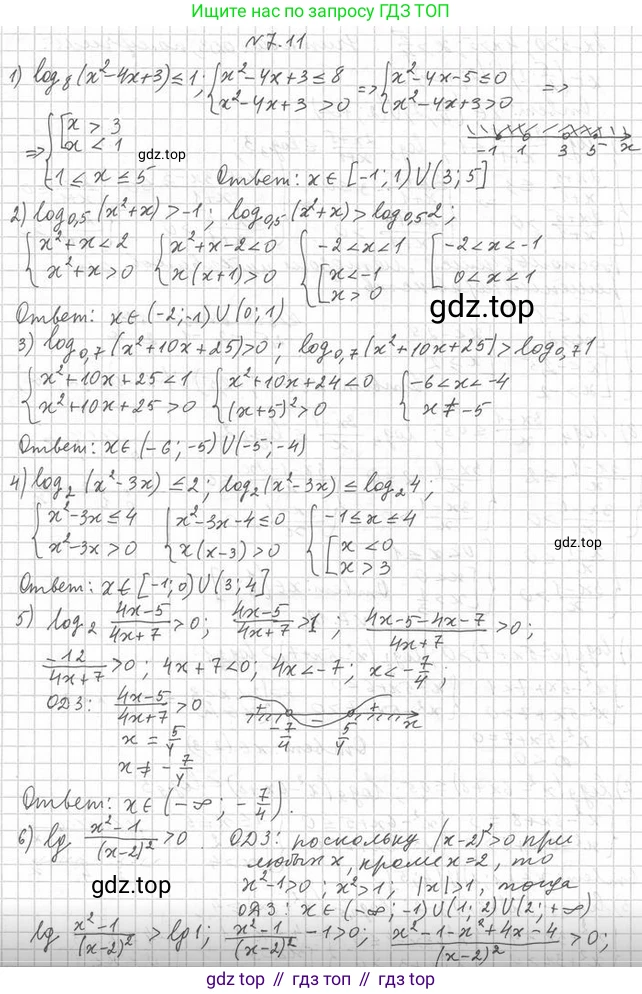 Ищите нас по запросу ГДЗ ТОП
№7.11
1) log₈(x²-4x+3)≤1; {x²-4x+3≤8 => {x²-4x-5≤0 =>
{x²-4x+3>0 {x²-4x+3>0
=> {[x>3
[x<1
{-1≤x≤5
-1 1 3 5 x
gdz.top
Ответ: x∈[-1;1)∪(3;5]
2) log₀,₅(x²+x)>-1; log₀,₅(x²+x)>log₀,₅2;
{x²+x<2 {x²+x-2<0 {-2<x<1 [-2<x<-1
{x²+x>0 {x(x+1)>0 {[x<-1 [0<x<1
[x>0
gdz.top
Ответ: x∈(-2;-1)∪(0;1)
3) log₀,₇(x²+10x+25)>0; log₀,₇(x²+10x+25)>log₀,₇1
{x²+10x+25<1 {x²+10x+24<0 {-6<x<-4
{x²+10x+25>0 {(x+5)²>0 {x≠-5
Ответ: x∈(-6;-5)∪(-5;-4)
4) log₂(x²-3x)≤2; log₂(x²-3x)≤log₂4;
{x²-3x≤4 {x²-3x-4≤0 {-1≤x≤4
{x²-3x>0 {x(x-3)>0 {[x<0
[x>3
gdz.top
Ответ: x∈[-1;0)∪(3;4]
5) log₂ (4x-5)/(4x+7)>0; (4x-5)/(4x+7)>1; (4x-5-4x-7)/(4x+7)>0;
-12/(4x+7)>0; 4x+7<0; 4x<-7; x<-7/4;
ОДЗ: (4x-5)/(4x+7)>0
x=5/4
x≠-7/4
+ - + x
-7/4 5/4
Ответ: x∈(-∞;-7/4).
6) lg (x²-1)/(x-2)²>0. ОДЗ: поскольку (x-2)²>0 при
любых x, кроме x=2, то
x²-1>0; x²>1; |x|>1, тогда
ОДЗ: x∈(-∞;-1)∪(1;2)∪(2;+∞)
gdz.top
lg (x²-1)/(x-2)²>lg1; (x²-1)/(x-2)²-1>0; (x²-1-x²+4x-4)/(x-2)²>0;
gdz.top // гдз.топ // gdz.top // гдз.топ